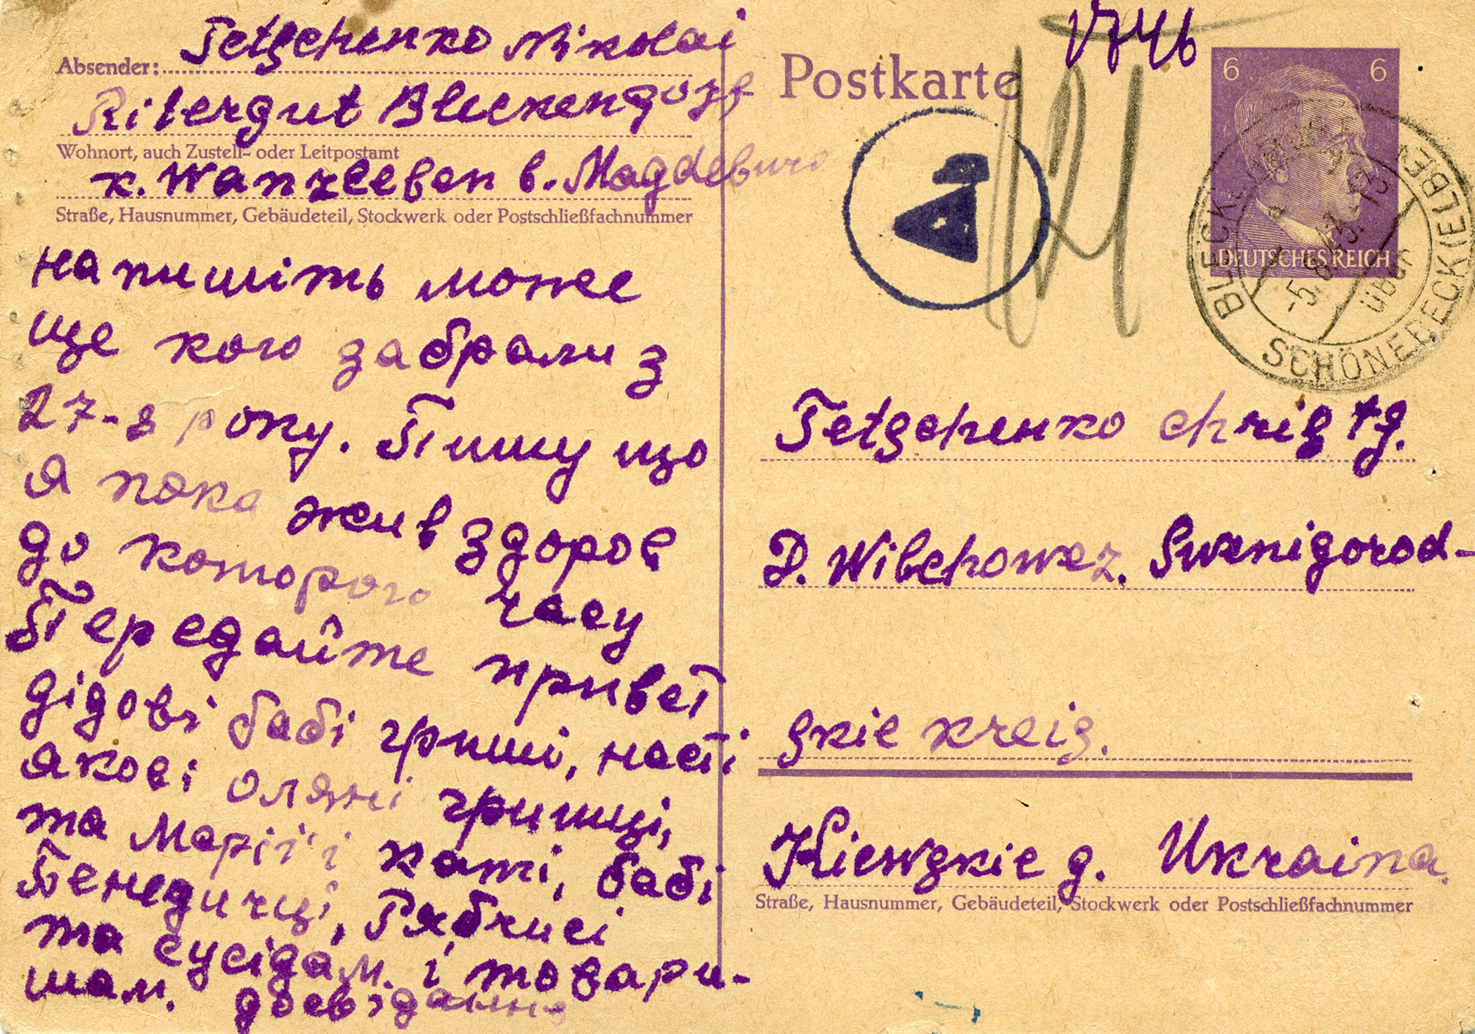 Absender: Tetschenko Nikolai
Ritergut Bleckendorf
Wohnort, auch Zustell- oder Leitpostamt
k. Wanzleben b. Magdeburg
Straße, Hausnummer, Gebäudeteil, Stockwerk oder Postschließfachnummer
напишіть може
ще кого забрали з
27-8 року. Пишу що
я пока жив здоров
до которого часу
Передайте привет
дідові бабі гриші, насті
якові оляні гришці,
та Марії і каті, бабі
Бенедичці, Рябчисі
та сусідам. і товари-
шам. досвідання
Postkarte
6 6
DEUTSCHES REICH
über
SCHÖNEBECK (ELBE)
Ab
Tetschenko
D. Wilchowez. Swenigorod-
skie kreis.
Kiewskie g. Ukraina.
Straße, Hausnummer, Gebäudeteil, Stockwerk oder Postschließfachnummer